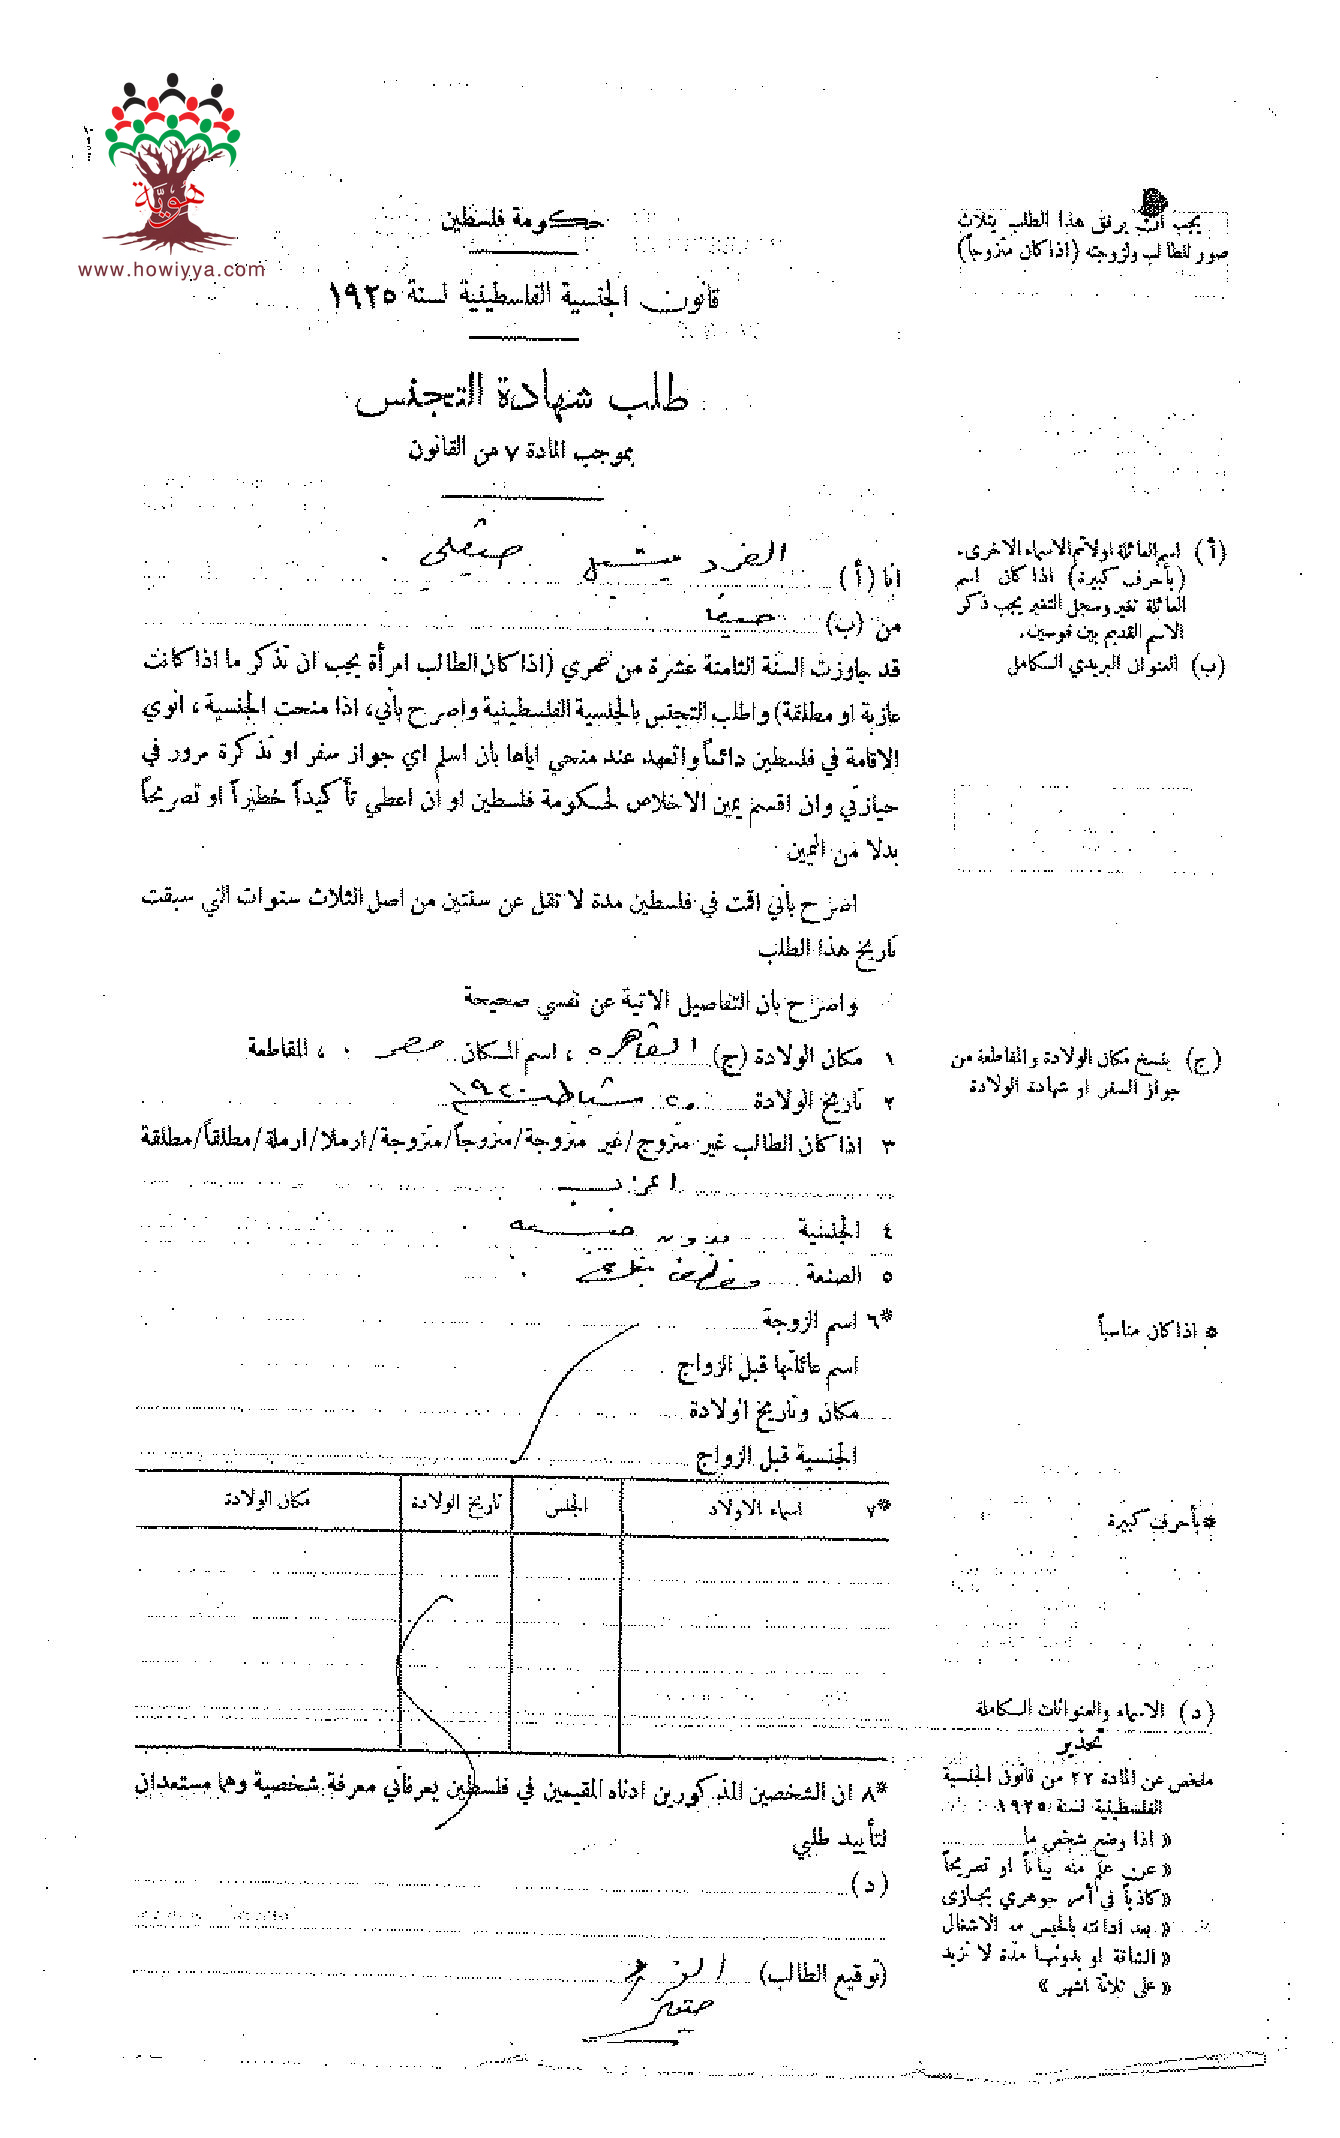 هوية
www.howiyya.com
حكومة فلسطين
قانون الجنسية الفلسطينية لسنة ١٩٢٥
طلب شهادة التجنس
بموجب المادة ٧ من القانون
يجب ان يرفق هذا الطلب بثلاث
صور للطالب ولزوجته (اذا كان متزوجاً)
انا (أ) الفرد ميشيل صيقلي
من (ب) حيفا
قد جاوزت السنة الثامنة عشرة من عمري (اذا كان الطالب امرأة يجب ان تذكر ما اذا كانت
عازبة او مطلقة) واطلب التجنس بالجنسية الفلسطينية واصرح بأني، اذا منحت الجنسية، انوي
الاقامة في فلسطين دائماً واتعهد عند منحي اياها بان اسلم اي جواز سفر او تذكرة مرور في
حيازتي وان اقسم يمين الاخلاص لحكومة فلسطين او ان اعطي تأكيداً خطيراً او تصريحاً
بدلا من اليمين
اصرح بأني اقمت في فلسطين مدة لا تقل عن سنتين من اصل الثلاث سنوات التي سبقت
تاريخ هذا الطلب
واصرح بان التفاصيل الاتية عن نفسي صحيحة
١ مكان الولادة (ج) القاهره ، اسم المكان مصر ، المقاطعة
٢ تاريخ الولادة شباط
٣ اذا كان الطالب غير متزوج/غير متزوجة/متزوجاً/متزوجة/ارملا/ارملة/مطلقاً/مطلقة
اعزب
٤ الجنسية بدون جنسيه
٥ الصنعة موظف بنك
*٦ اسم الزوجة
اسم عائلتها قبل الزواج
مكان وتاريخ الولادة
الجنسية قبل الزواج
*٧ اسماء الاولاد الجنس تاريخ الولادة مكان الولادة
*٨ ان الشخصين المذكورين ادناه المقيمين في فلسطين يعرفاني معرفة شخصية وهما مستعدان
لتأييد طلبي
(د)
(توقيع الطالب) الفرد
صيقلي
(أ) اسم العائلة اولا ثم الاسماء الاخرى.
(بأحرف كبيرة) اذا كان اسم
العائلة تغير وسجل التغير يجب ذكر
الاسم القديم بين قوسين.
(ب) العنوان البريدي الكامل
(ج) ينسخ مكان الولادة والمقاطعة من
جواز السفر او شهادة الولادة
* اذا كان مناسباً
*بأحرف كبيرة
(د) الاسماء والعنوانات الكاملة
تحذير
ملخص عن المادة ٢٢ من قانون الجنسية
الفلسطينية لسنة ١٩٢٥
« اذا وضع شخص ما
« عن علم منه بياناً او تصريحاً
« كاذباً في أمر جوهري يجازى
« بعد ادانته بالحبس مع الاشغال
« الشاقة او بدونها مدة لا تزيد
« على ثلاثة اشهر »